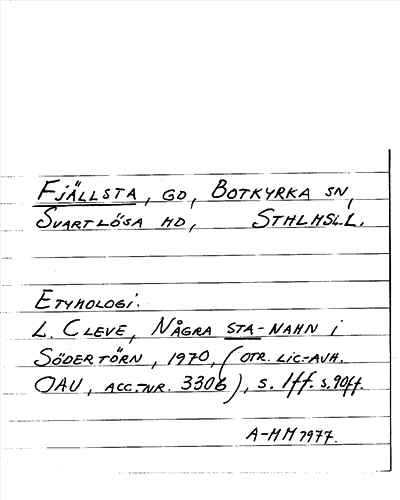 FJÄLLSTA, GD, BOTKYRKA SN,
SVARTLÖSA HD, STHLMSL.
ETYMOLOGI:
L. CLEVE, NÅGRA STA-NAMN I
SÖDERTÖRN, 1970, (OTR. LIC-AVH.
OAU, ACC.-NR. 3306), S. 1ff. S. 90ff.
A-MM 1977.